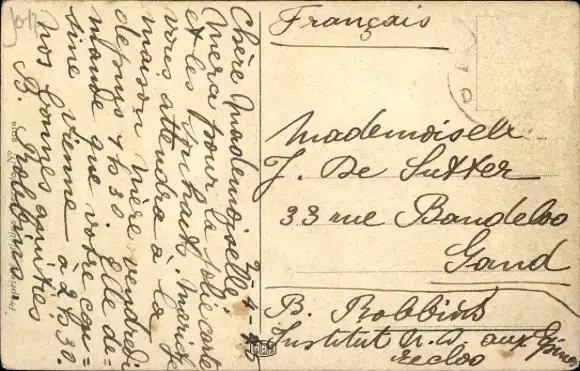 2-4-
Chère Mademoiselle
Merci pour la jolie carte
et les souhaits. Merci je
vous attendrai à la
maison mère vendredi
depuis 4h30. Elle de=
mande que votre cou=
sine vienne à 2h30.
Nos bonnes amitiés
B. Robbins
Français
Mademoiselle
J. De Sutter
33 rue Baudeloo
Gand
B. Robbins
Institut N.D. aux Epines
Eecloo